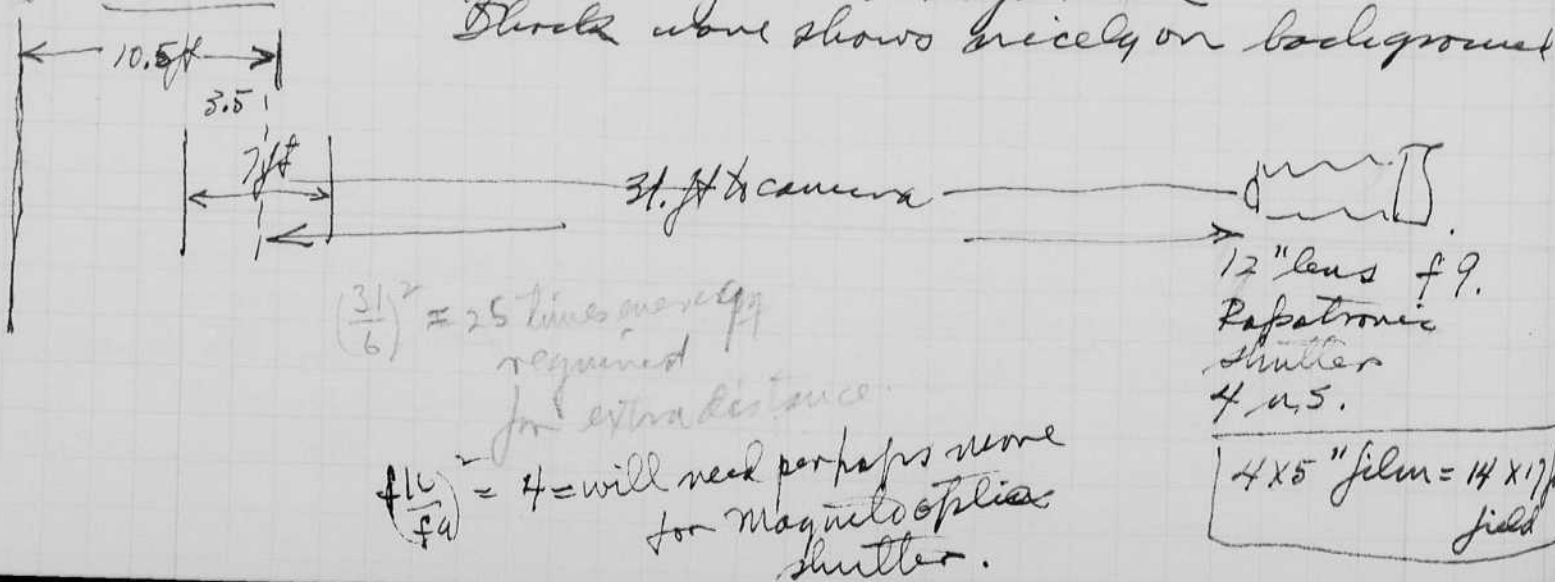 Shock wave shows nicely on background
10.5ft
3.5
7ft
31. ft to camera
12" lens f 9.
Rapatronic
shutter
4 u.s.
4x5" film = 14 x 17
field
(31/6)² = 25 times energy
required
for extra distance.
= 4 = will need perhaps more
for Magneto optic
shutter.